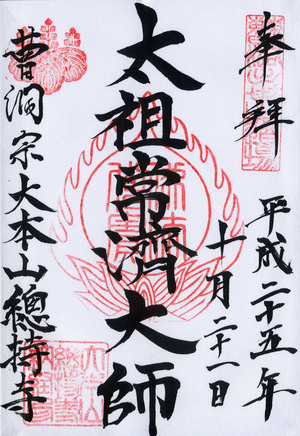 奉拝
平成二十五年
十月二十一日
太祖常濟大師
曹洞宗大本山總持寺